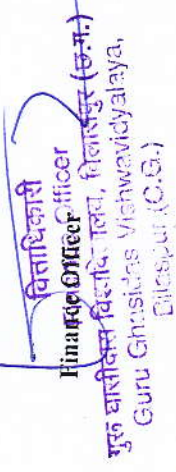 वित्ताधिकारी
Finance Officer
गुरु घासीदास विश्वविद्यालय, बिलासपुर (छ.ग.)
Guru Ghasidas Vishwavidyalaya,
Bilaspur (C.G.)